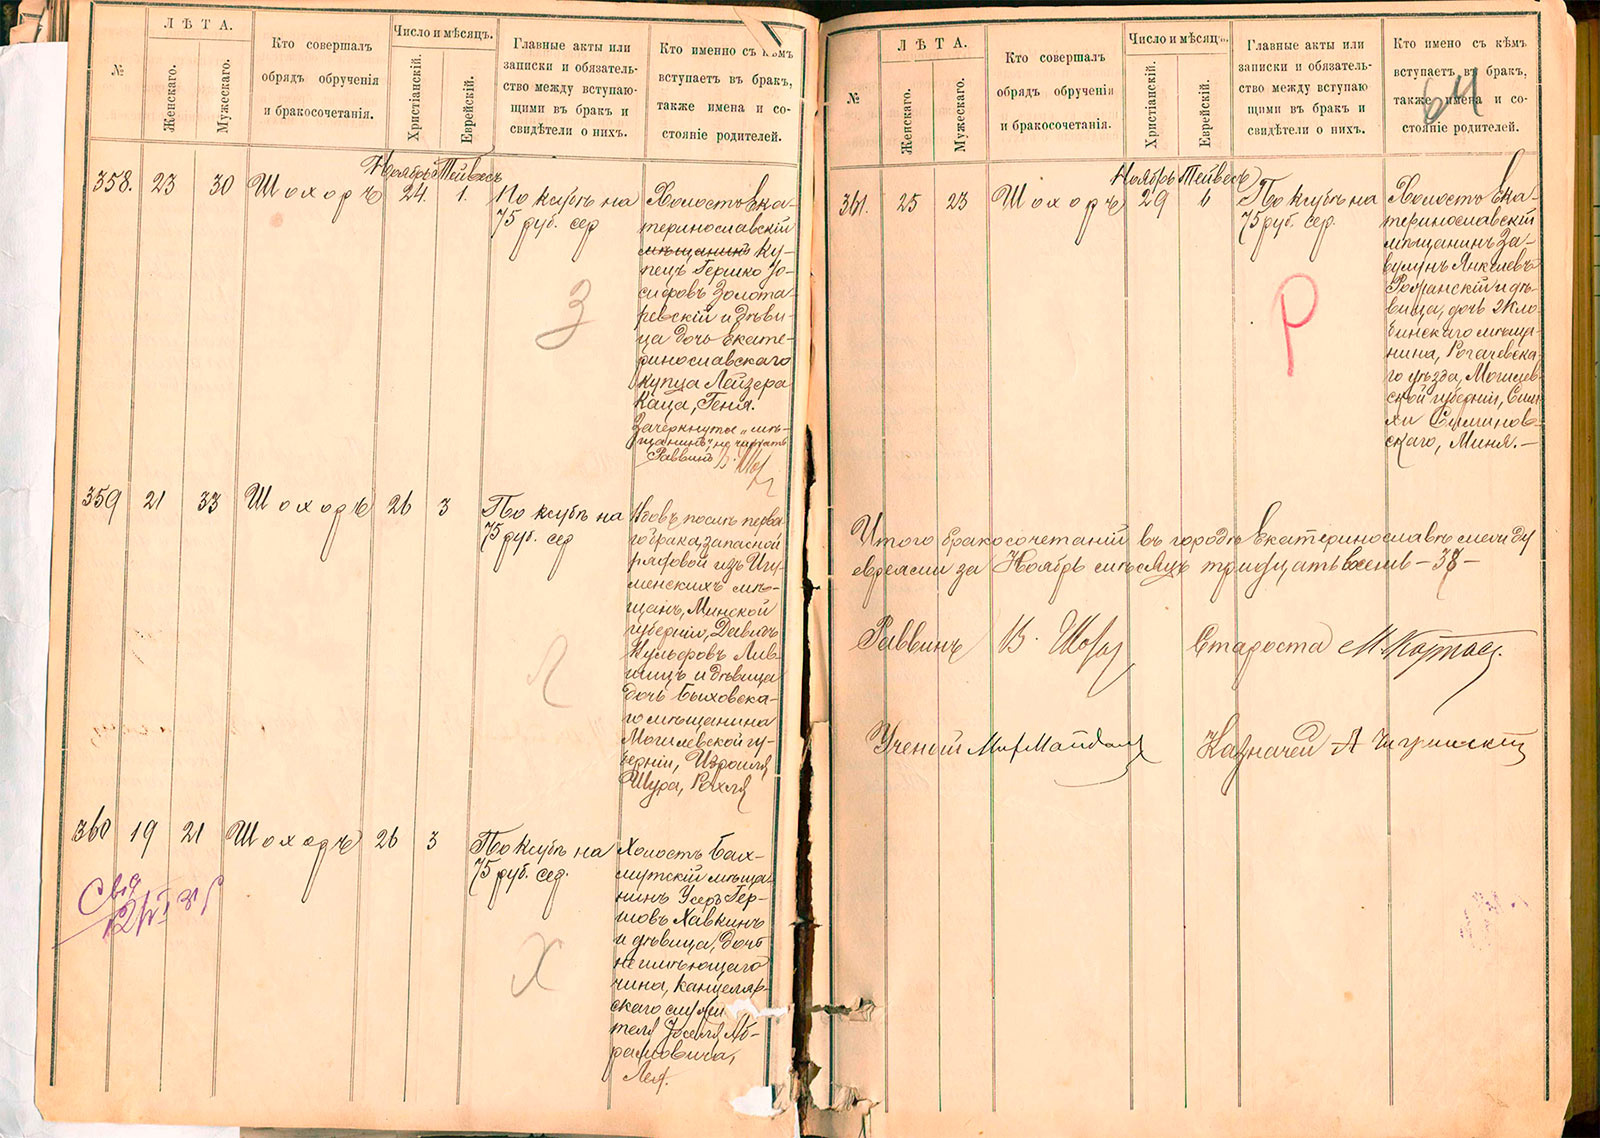 №
ЛѢТА.
Женскаго.
Мужескаго.
Кто совершалъ
обрядъ обрученія
и бракосочетанія.
Число и мѣсяцъ.
Христіанскій.
Еврейскій.
Главные акты или
записки и обязатель-
ство между вступаю-
щими въ бракъ и
свидѣтели о нихъ.
Кто именно съ кѣмъ
вступаетъ въ бракъ,
также имена и со-
стояніе родителей.
Ноябрь Тейвесъ
358. 23 30 Шохоръ 24. 1.
По ктубѣ на
75 руб. сер
Холостъ Ека-
теринославскій
мѣщанинъ ку-
пецъ Гершко Іо-
сифовъ Золота-
ревскій и дѣви-
ца дочь Екате-
ринославскаго
купца Лейзера
Каца, Геня.
Зачеркнутые „мѣ-
щанинъ" не читать
Раввинъ В. Шохоръ
З
359 21 33 Шохоръ 26 3
По ктубѣ на
75 руб. сер
Вдовъ послѣ перва-
го брака, запасной
рядовой изъ Игу-
менскихъ мѣ-
щанъ, Минской
губерніи, Давидъ
Вульфовъ Лив-
шицъ и дѣвица
дочь Быховска-
го мѣщанина
Могилевской гу-
берніи, Израиля
Шура, Рохля
Л
360 19 21 Шохоръ 26 3
По ктубѣ на
75 руб. сер.
Холостъ Бах-
мутскій мѣща-
нинъ Усеръ Гер-
шовъ Хавкинъ
и дѣвица, дочь
неимѣющаго
чина, канцеляр-
скаго служи
теля Іоселя Аб-
рамовича,
Лея.
Х
№
ЛѢТА.
Женскаго.
Мужескаго.
Кто совершалъ
обрядъ обрученія
и бракосочетанія.
Число и мѣсяцъ.
Христіанскій.
Еврейскій.
Главные акты или
записки и обязатель-
ство между вступаю
щими въ бракъ и
свидѣтели о нихъ.
Кто имено съ кѣмъ
вступаетъ въ бракъ,
также имена и со-
стояніе родителей.
64
Ноябрь Тейвесъ
361. 25 23 Шохоръ 29 6
По ктубѣ на
75 руб. сер.
Холостъ Ека-
теринославскій
мѣщанинъ За-
вулунъ Янкелевъ
и дѣ-
вица, дочь Жло-
бинскаго мѣща-
нина, Рогачевска-
го уѣзда, Могилев-
ской губерніи, Сим-
хи
скаго, Миня.—
Р
Итого бракосочетаній въ городѣ Екатеринославѣ между
евреями за Ноябрь мѣсяцъ тридцать восемь — 38 —
Раввинъ В. Шохоръ Староста М.
Ученый Казначей А Чигринскій